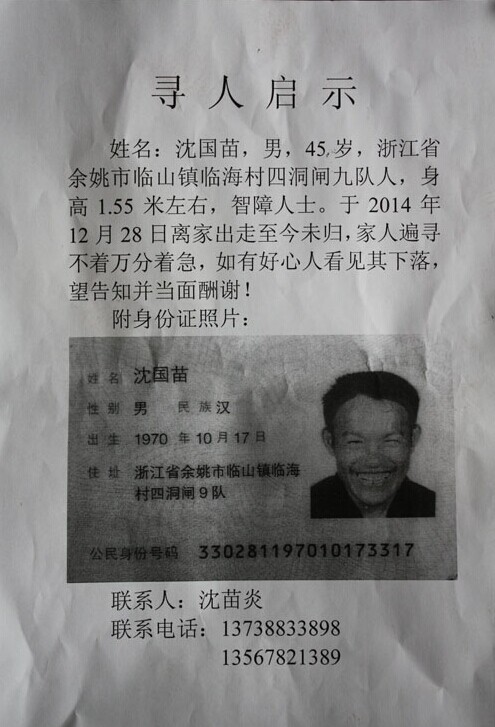 寻人启示
姓名：沈国苗，男，45岁，浙江省
余姚市临山镇临海村四洞闸九队人，身
高 1.55 米左右，智障人士。于 2014 年
12 月 28 日离家出走至今未归，家人遍寻
不着万分着急，如有好心人看见其下落，
望告知并当面酬谢！
附身份证照片：
姓名 沈国苗
性别 男 民族 汉
出生 1970 年 10 月 17 日
住址 浙江省余姚市临山镇临海
村四洞闸9队
公民身份号码 330281197010173317
联系人：沈苗炎
联系电话：13738833898
13567821389